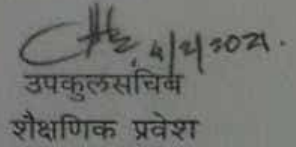 4/2/2021.
उपकुलसचिव
शैक्षणिक प्रवेश